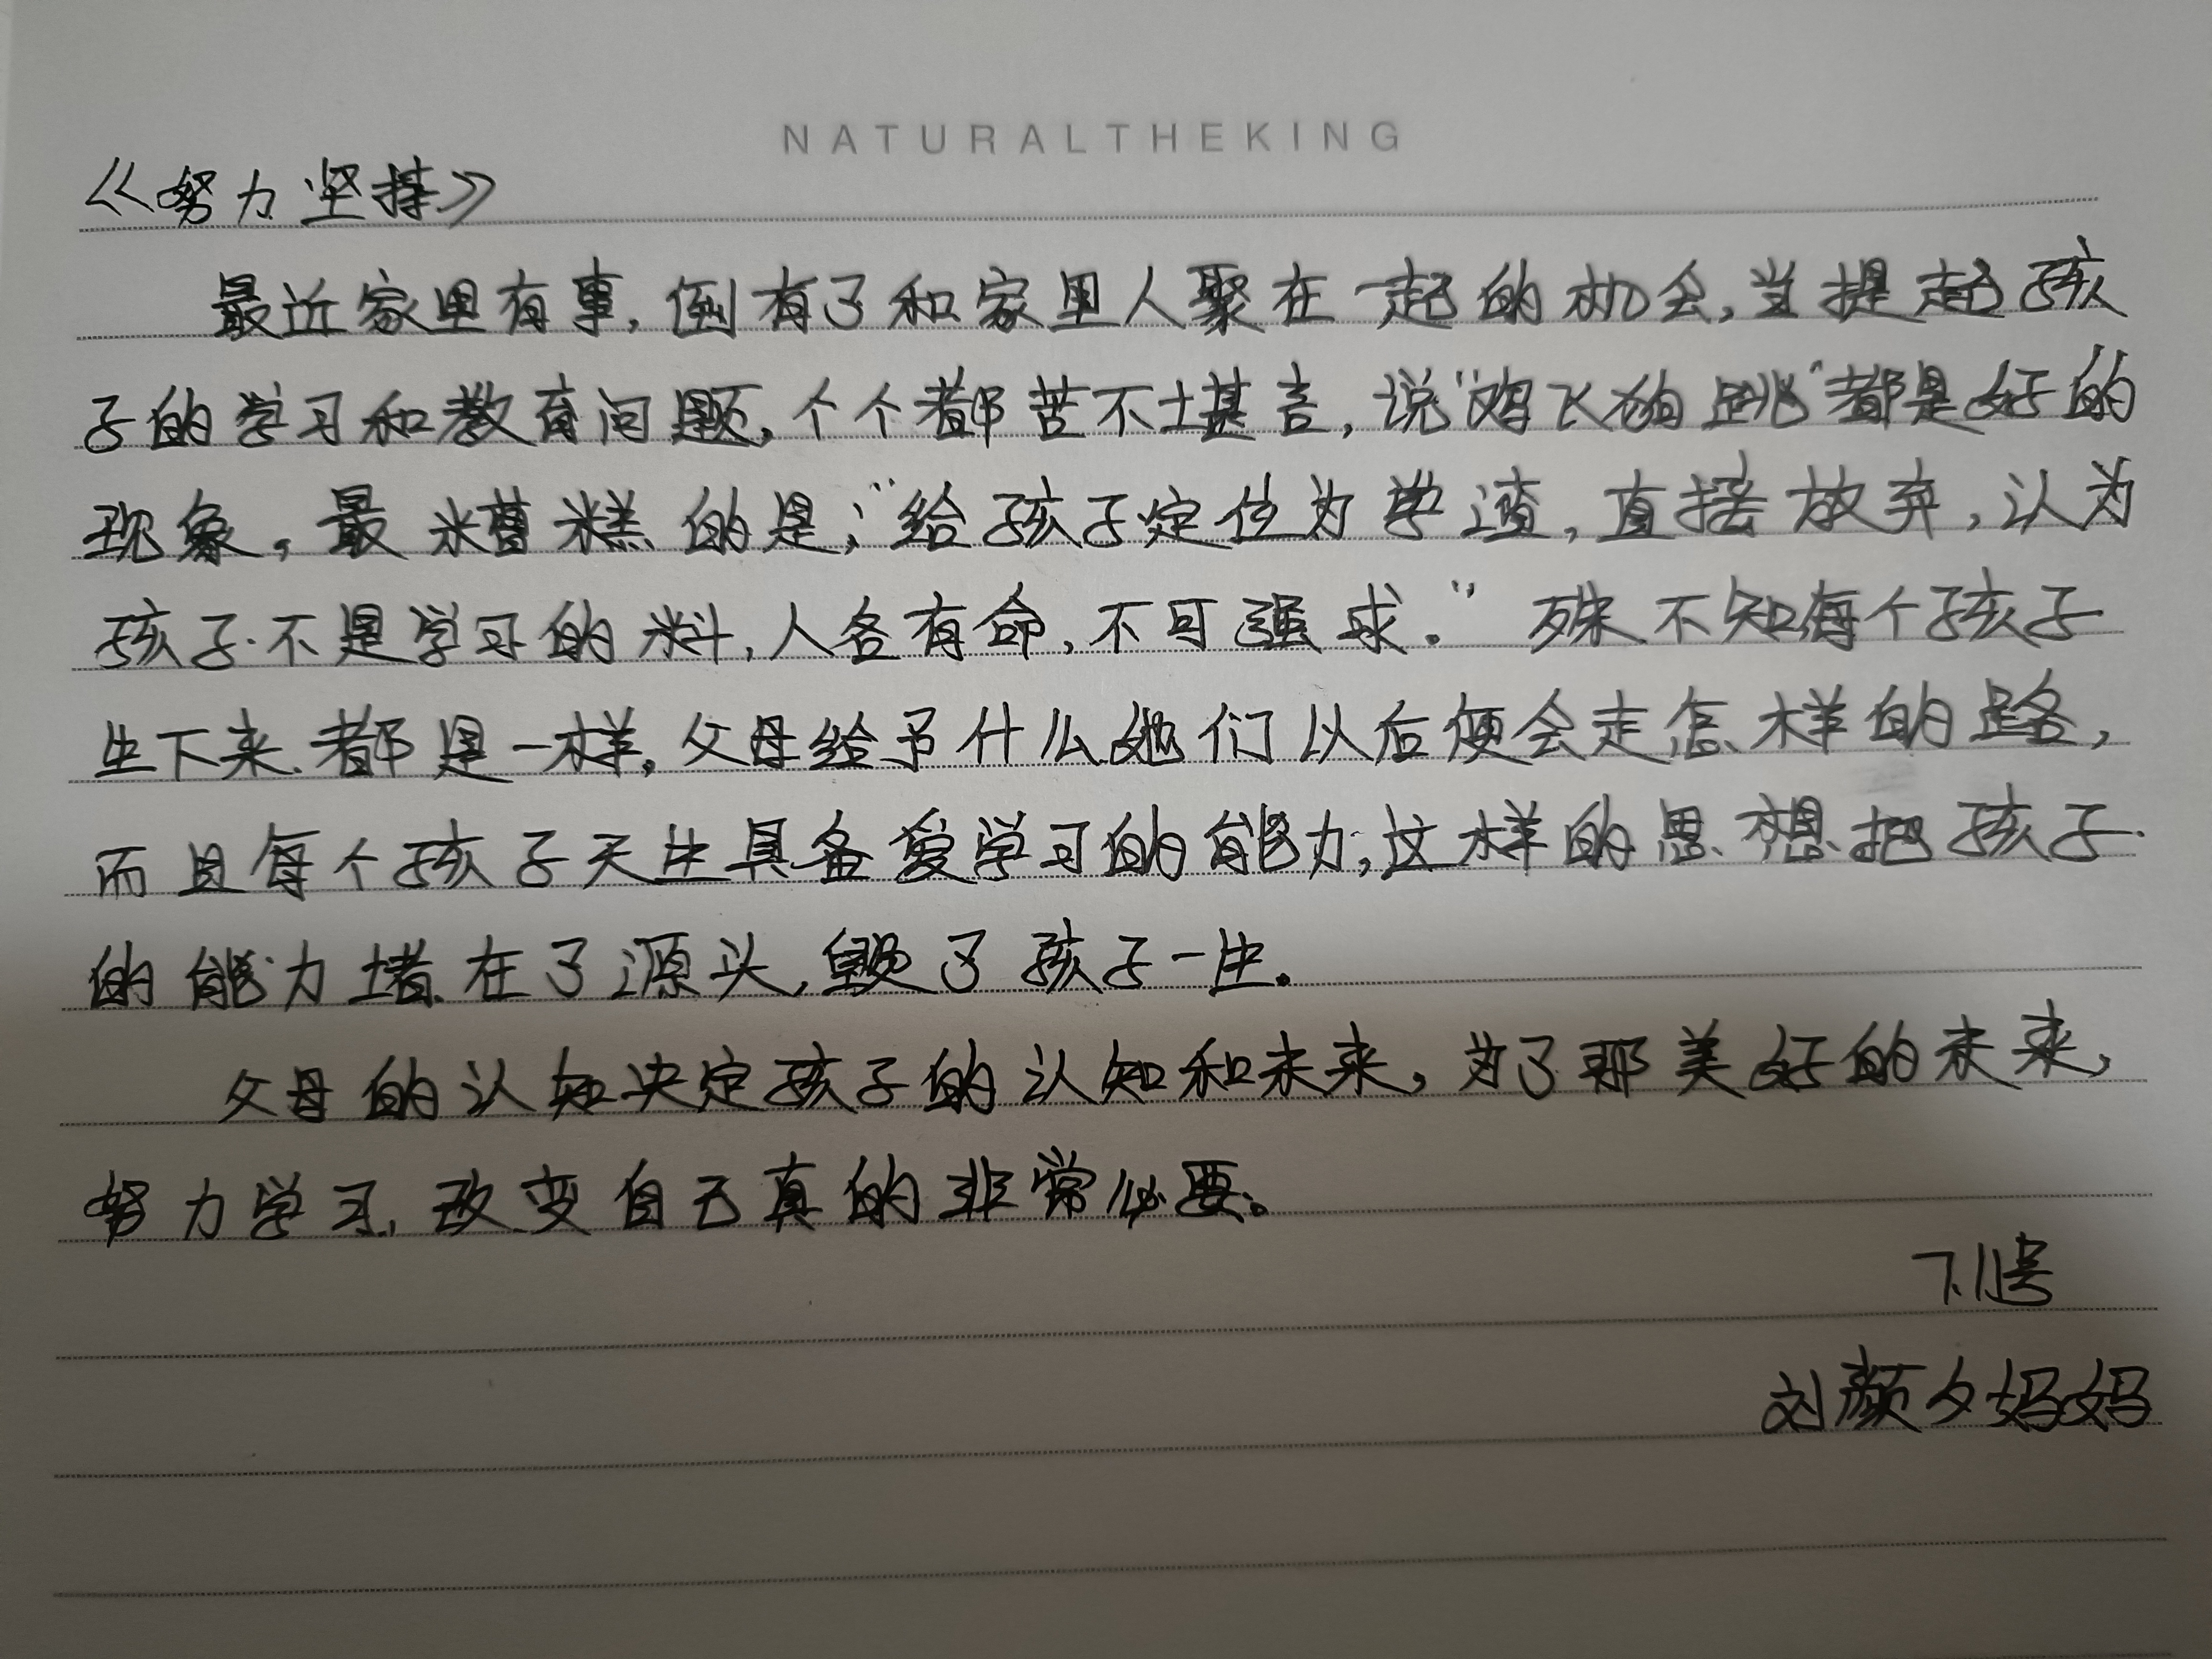 NATURALTHEKING
《努力坚持》
最近家里有事，倒有了和家里人聚在一起的机会，当提起孩
子的学习和教育问题，个个都苦不堪言，说“鸡飞狗跳”都是好的
现象。最糟糕的是；“给孩子定位为学渣，直接放弃，认为
孩子不是学习的料，人各有命，不可强求。”殊不知每个孩子
生下来都是一样，父母给予什么她们以后便会走怎样的路，
而且每个孩子天生具备爱学习的能力，这样的思想把孩子
的能力堵在了源头，毁了孩子一生。
父母的认知决定孩子的认知和未来，为了那美好的未来，
努力学习，改变自己真的非常必要。
刘颜夕妈妈